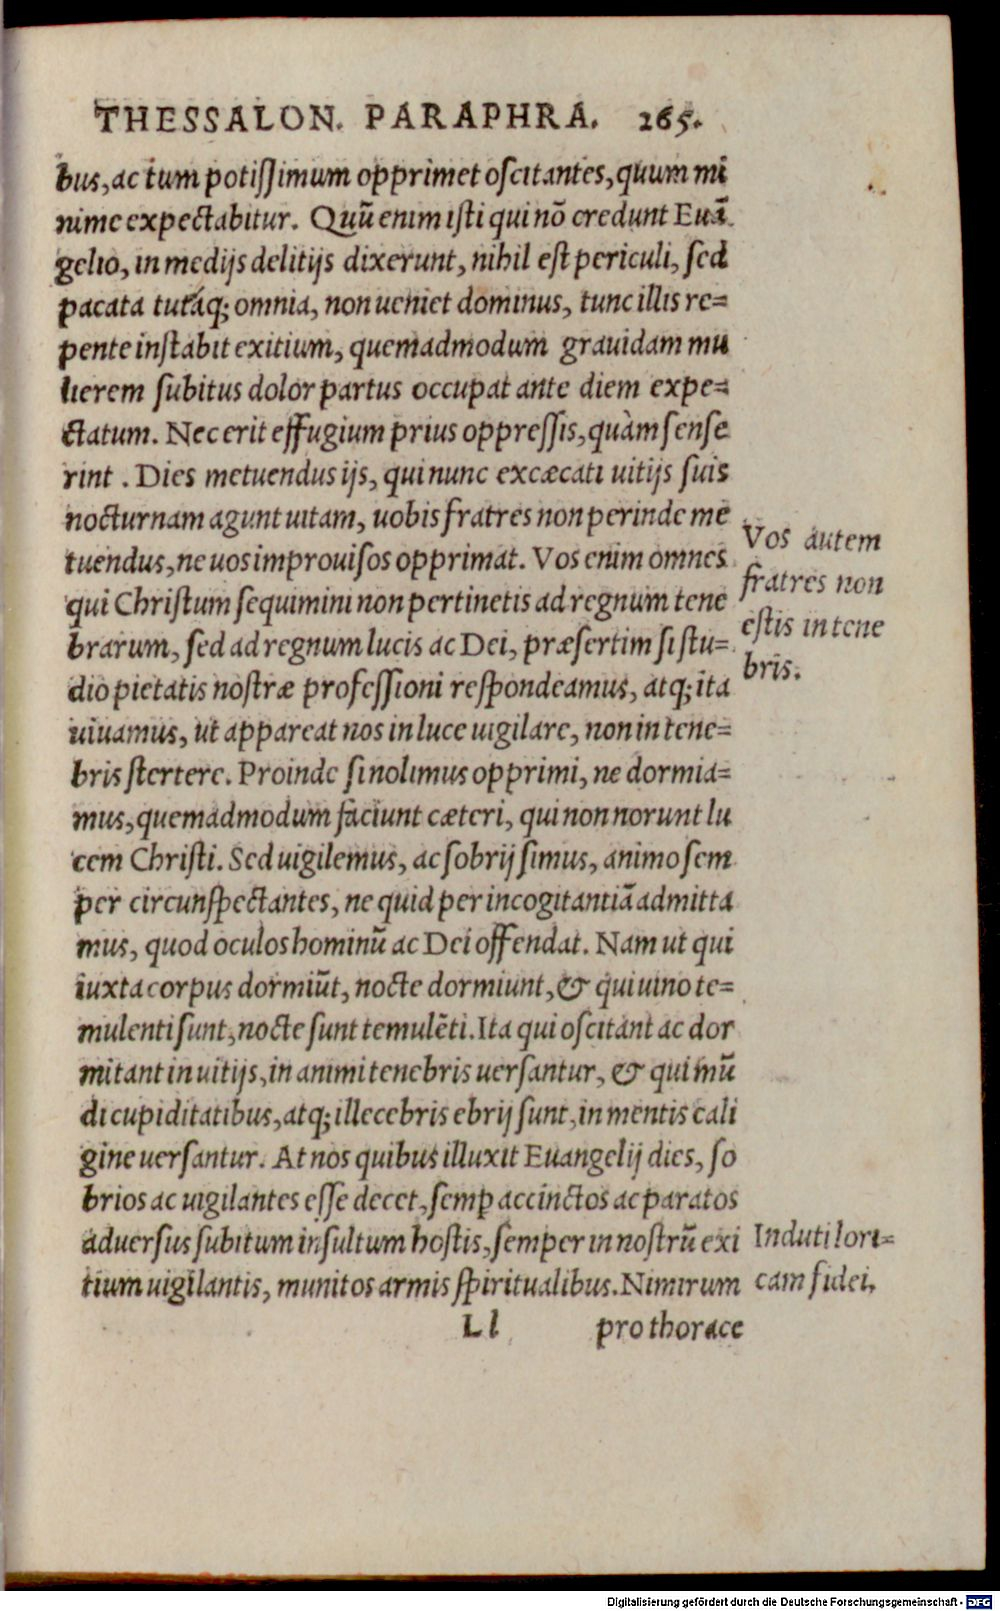 THESSALON. PARAPHRA. 265.
bus, ac tum potissimum opprimet oscitantes, quum mi
nime expectabitur. Quũ enim isti qui nõ credunt Euã
gelio, in medijs delitijs dixerunt, nihil est periculi, sed
pacata tutáq; omnia, non ueniet dominus, tunc illis re=
pente instabit exitium, quemadmodum grauidam mu
lierem subitus dolor partus occupat ante diem expe=
ctatum. Nec erit effugium prius oppressis, quàm sense
rint . Dies metuendus ijs, qui nunc excæcati uitijs suis
nocturnam agunt uitam, uobis fratres non perinde me
tuendus, ne uos improuisos opprimat. Vos enim omnes
qui Christum sequimini non pertinetis ad regnum tene
brarum, sed ad regnum lucis ac Dei, præsertim si stu=
dio pietatis nostræ professioni respondeamus, atq; ita
uiuamus, ut appareat nos in luce uigilare, non in tene=
bris stertere. Proinde si nolimus opprimi, ne dormia=
mus, quemadmodum faciunt cæteri, qui non norunt lu
cem Christi. Sed uigilemus, ac sobrij simus, animo sem
per circunspectantes, ne quid per incogitantiã admitta
mus, quod oculos hominũ ac Dei offendat. Nam ut qui
iuxta corpus dormiũt, nocte dormiunt, & qui uino te=
mulenti sunt, nocte sunt temulẽti. Ita qui oscitant ac dor
mitant in uitijs, in animi tenebris uersantur, & qui mũ
di cupiditatibus, atq; illecebris ebrij sunt, in mentis cali
gine uersantur. At nos quibus illuxit Euangelij dies, so
brios ac uigilantes esse decet, semꝑ accinctos ac paratos
aduersus subitum insultum hostis, semper in nostrũ exi
tium uigilantis, munitos armis spiritualibus. Nimirum
Ll pro thorace
Vos autem
fratres non
estis in tene
bris.
Induti lori=
cam fidei.
Digitalisierung gefördert durch die Deutsche Forschungsgemeinschaft - DFG